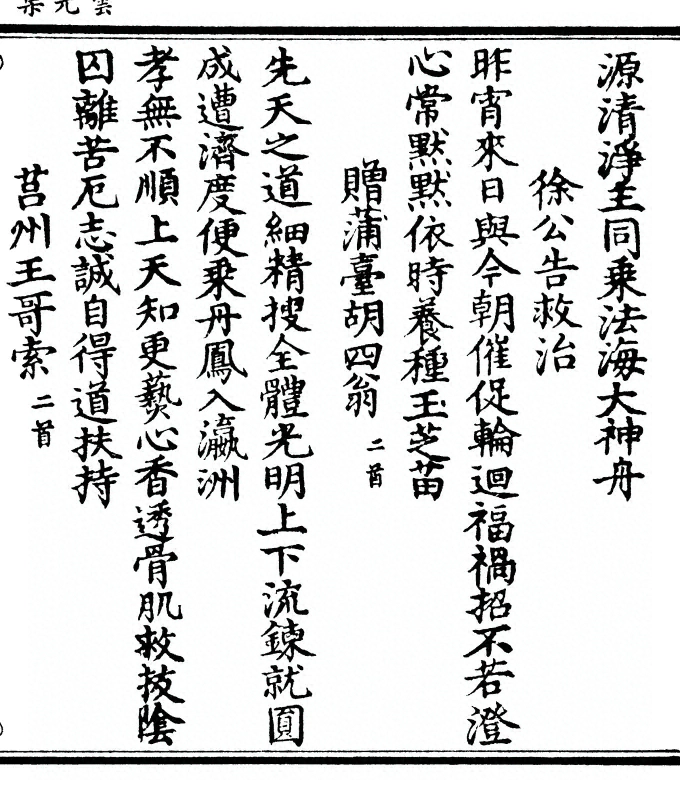 雲光集
源清淨主同乗法海大神舟
徐公告救治
昨宵來日與今朝催促輪迴福禍招不若澄
心常黙黙依時養種玉芝苗
贈蒲臺胡四翁 二首
先天之道細精搜全體光明上下流鍊就圓
成遭濟度便乗丹鳳入瀛洲
孝無不順上天知更爇心香透骨肌救拔陰
囚離苦厄志誠自得道扶持
莒州王哥索 二首